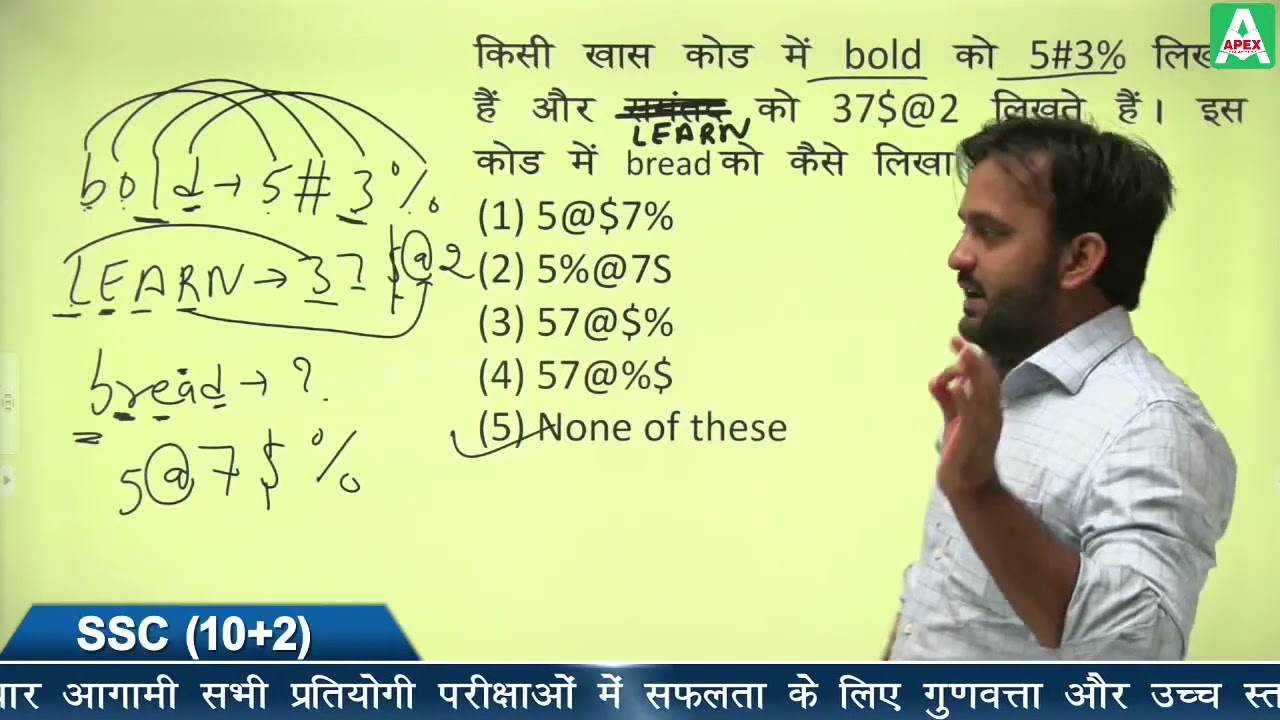 किसी खास कोड में bold को 5#3% लिख
हैं और को 37$@2 लिखते हैं। इस
LEARN
कोड में bread को कैसे लिखा
(1) 5@$7%
(2) 5%@7S
(3) 57@$%
(4) 57@%$
(5) None of these
bold → 5 # 3 %
LEARN → 37 $ @ 2
bread → ?
5 @ 7 $ %
APEX
SSC (10+2)
ार आगामी सभी प्रतियोगी परीक्षाओं में सफलता के लिए गुणवत्ता और उच्च स्त